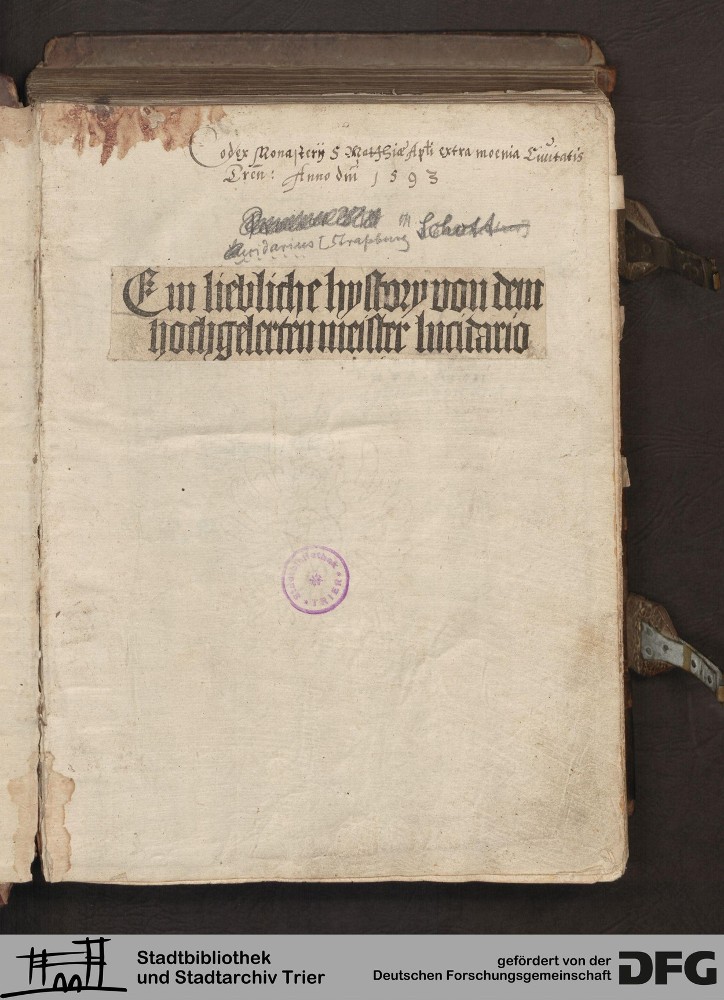 Codex Monasterij S Matthiæ Apli extra moenia Ciuitatis
Treũ: Anno dm̃ 1593
m Schott
Lucidarius [Straßburg
Ein liebliche hystory von dem
hochgelerten meister lucidario
Stadtbibliothek
* TRIER *
Stadtbibliothek
und Stadtarchiv Trier
gefördert von der
Deutschen Forschungsgemeinschaft
DFG